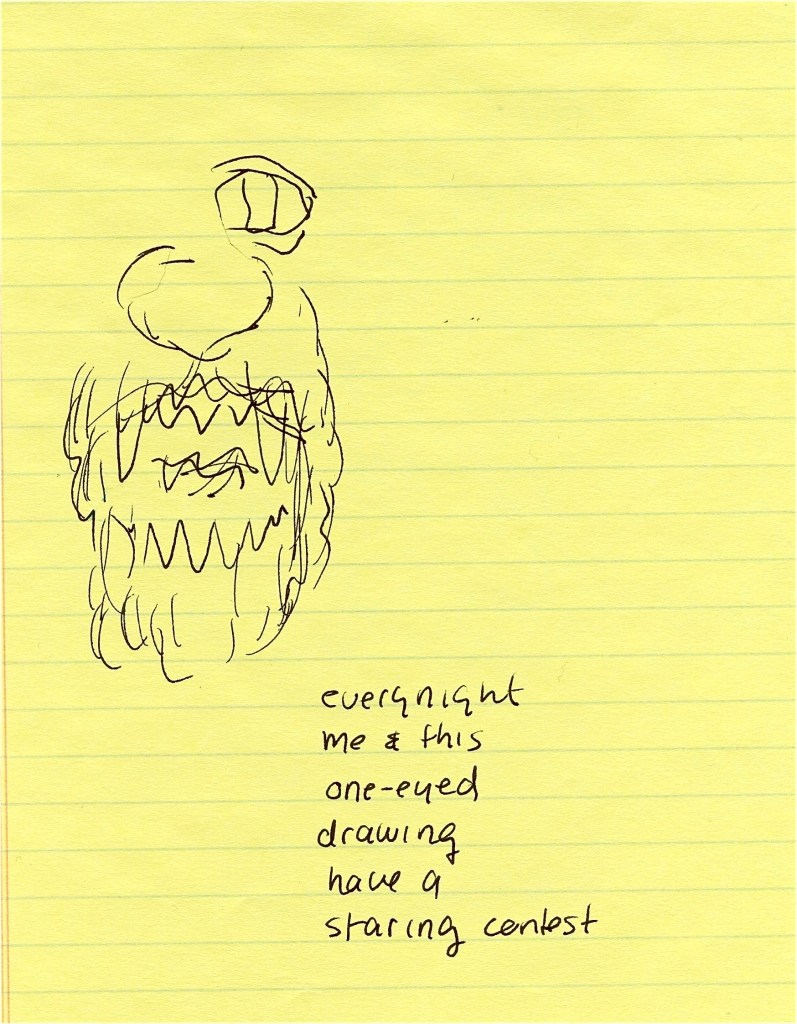 everynight
me & this
one-eyed
drawing
have a
staring contest